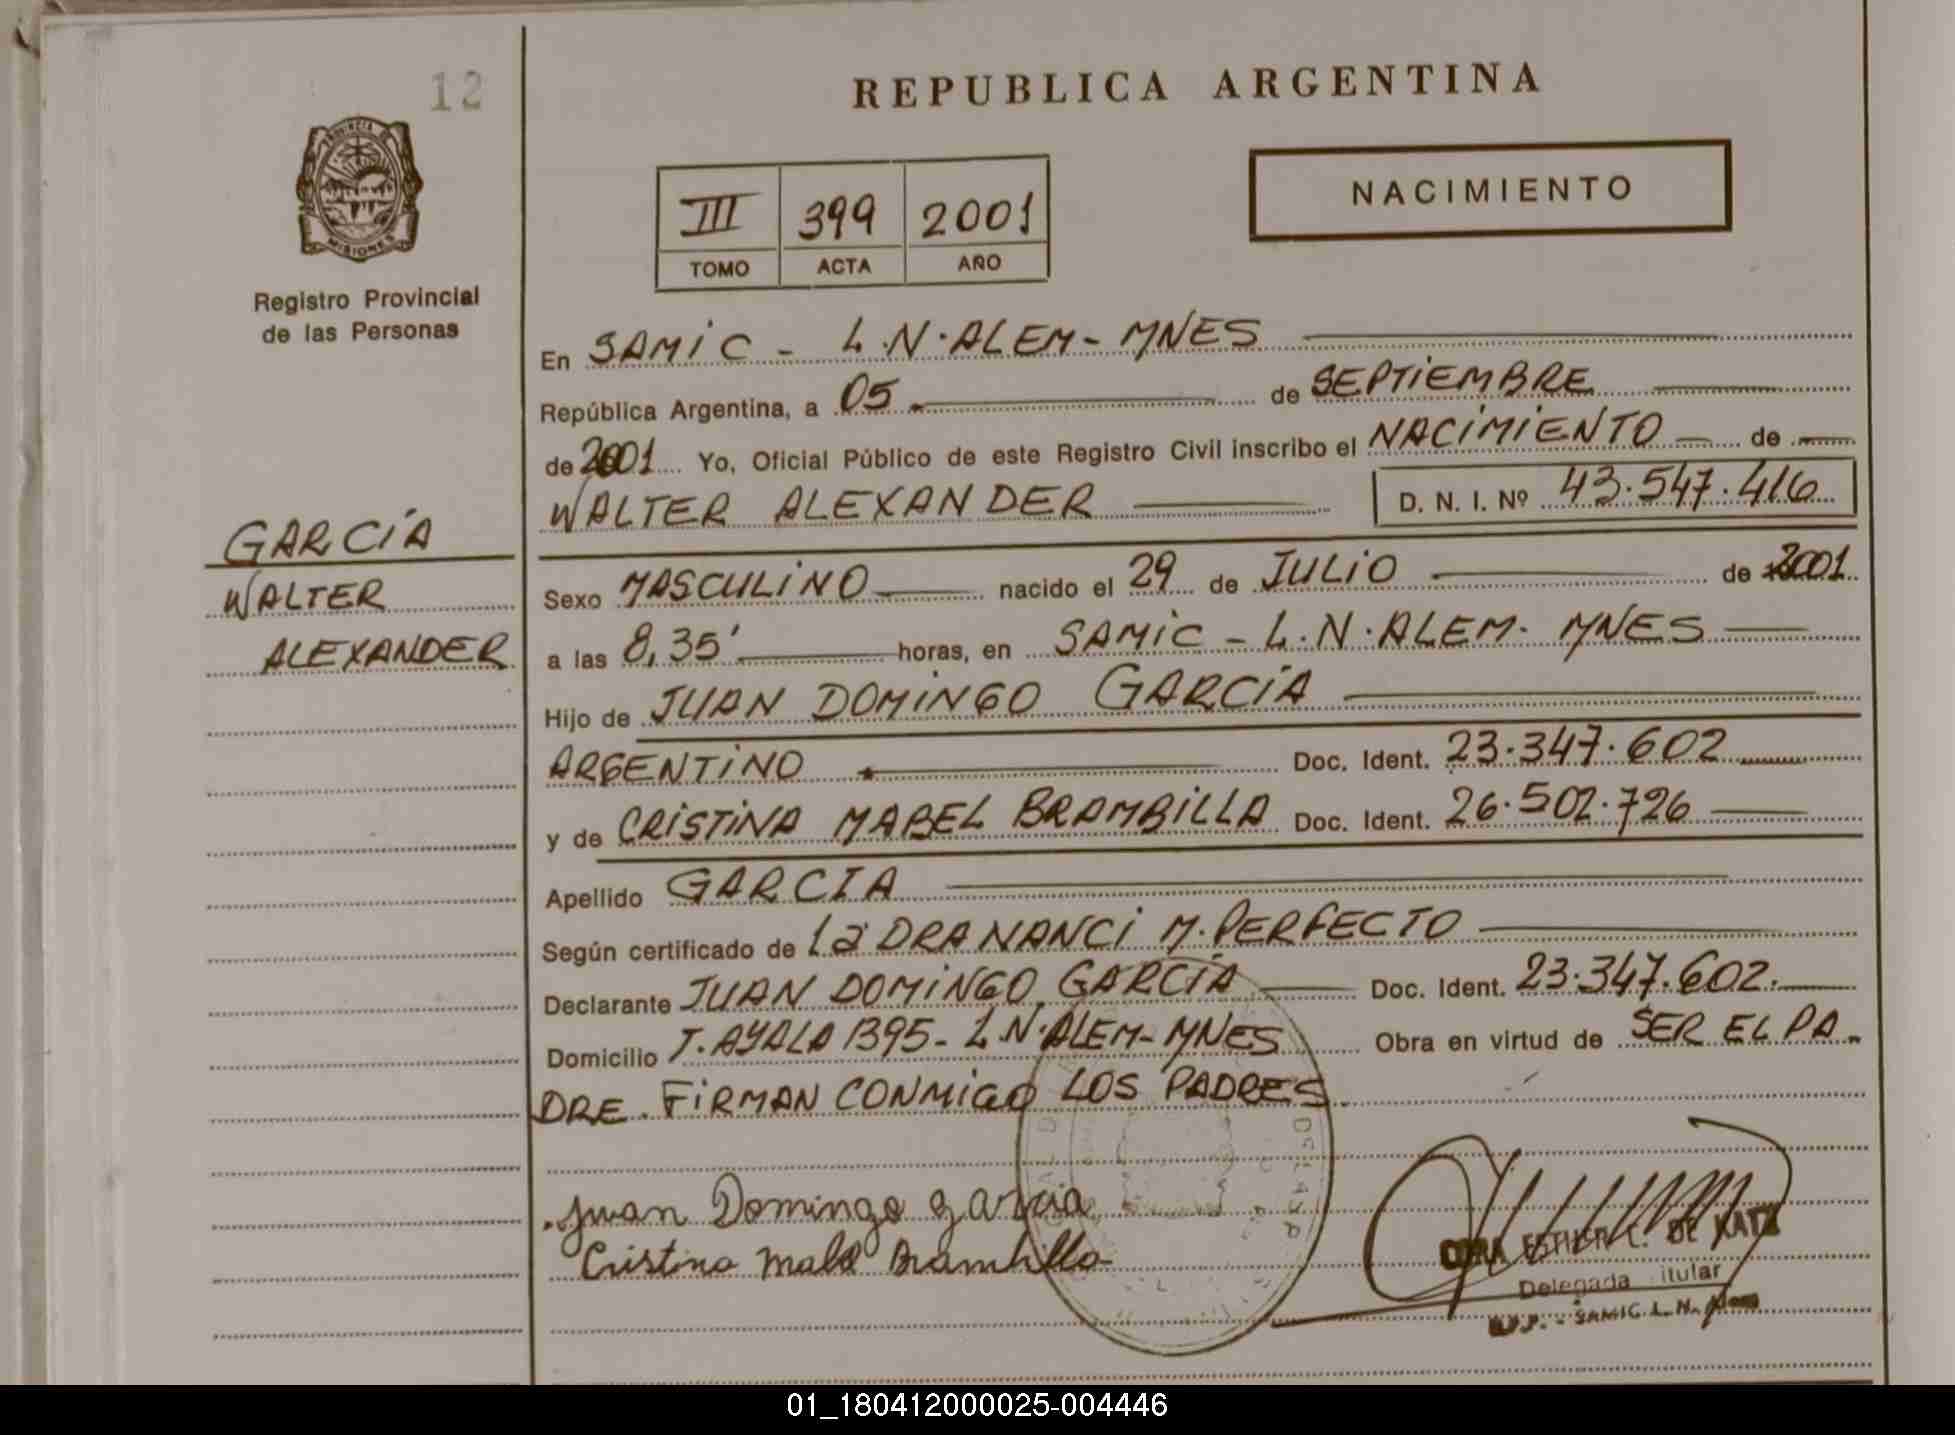 12
REPUBLICA ARGENTINA
PROVINCIA DE
MISIONES
Registro Provincial
de las Personas
III 399 2001
TOMO ACTA AÑO
NACIMIENTO
En SAMIC - L.N.ALEM - MNES
República Argentina, a 05 de SEPTIEMBRE
de 2001 Yo, Oficial Público de este Registro Civil inscribo el NACIMIENTO de
WALTER ALEXANDER D. N. I. Nº 43.547.416
GARCÍA
WALTER
ALEXANDER
Sexo MASCULINO nacido el 29 de JULIO de 2001
a las 8,35' horas, en SAMIC - L.N.ALEM. MNES
Hijo de JUAN DOMINGO GARCÍA
ARGENTINO Doc. Ident. 23.347.602
y de CRISTINA MABEL BRAMBILLA Doc. Ident. 26.502.726
Apellido GARCIA
Según certificado de la DRA NANCI M. PERFECTO
Declarante JUAN DOMINGO GARCÍA Doc. Ident. 23.347.602.
Domicilio T. AYALA 1395 - L.N.ALEM - MNES Obra en virtud de SER EL PA-
DRE. FIRMAN CONMIGO LOS PADRES.
Juan Domingo Garcia
Cristina Mabel Brambilla
ESTHER C. DE KATZ
Delegada Titular
SAMIC L. N. Alem
01_180412000025-004446